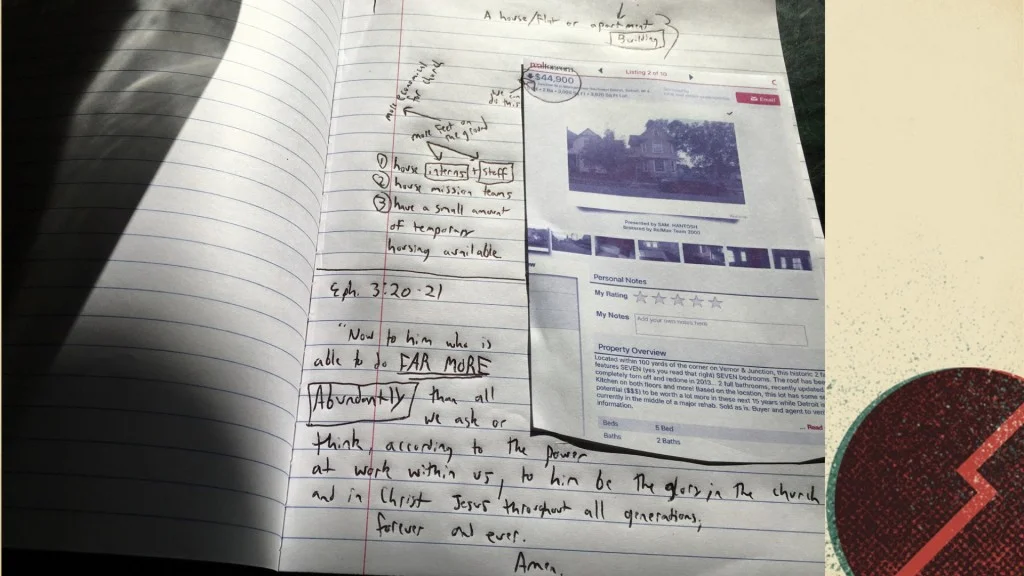 A house/flat or apartment
Building
more economical
for church
we can
do this
more feet on
the ground
① house interns + staff
② house mission teams
③ have a small amount
of temporary
housing available
Eph. 3:20-21
"Now to him who is
able to do FAR MORE
Abundantly than all
we ask or
think according to the power
at work within us, to him be the glory in the church
and in Christ Jesus throughout all generations,
forever and ever.
Amen.
$44,900
Listing 2 of 10
Email
Presented by SAM
Brokered by Re/Max Team 2000
Personal Notes
My Rating
My Notes
Add your own notes here
Property Overview
Located within 100 yards of the corner on Vernor & Junction, this historic 2
features SEVEN (yes you read that right) SEVEN bedrooms. The roof has
completely torn off and redone in 2013... 2 full bathrooms, recently updated.
Kitchen on both floors and more! Based on the location, this lot has some
potential ($$$) to be worth a lot more in these next 15 years while Detroit
currently in the middle of a major rehab. Sold as is. Buyer and agent to
information.
Beds 5 Bed
... Read
Baths: 2 Baths